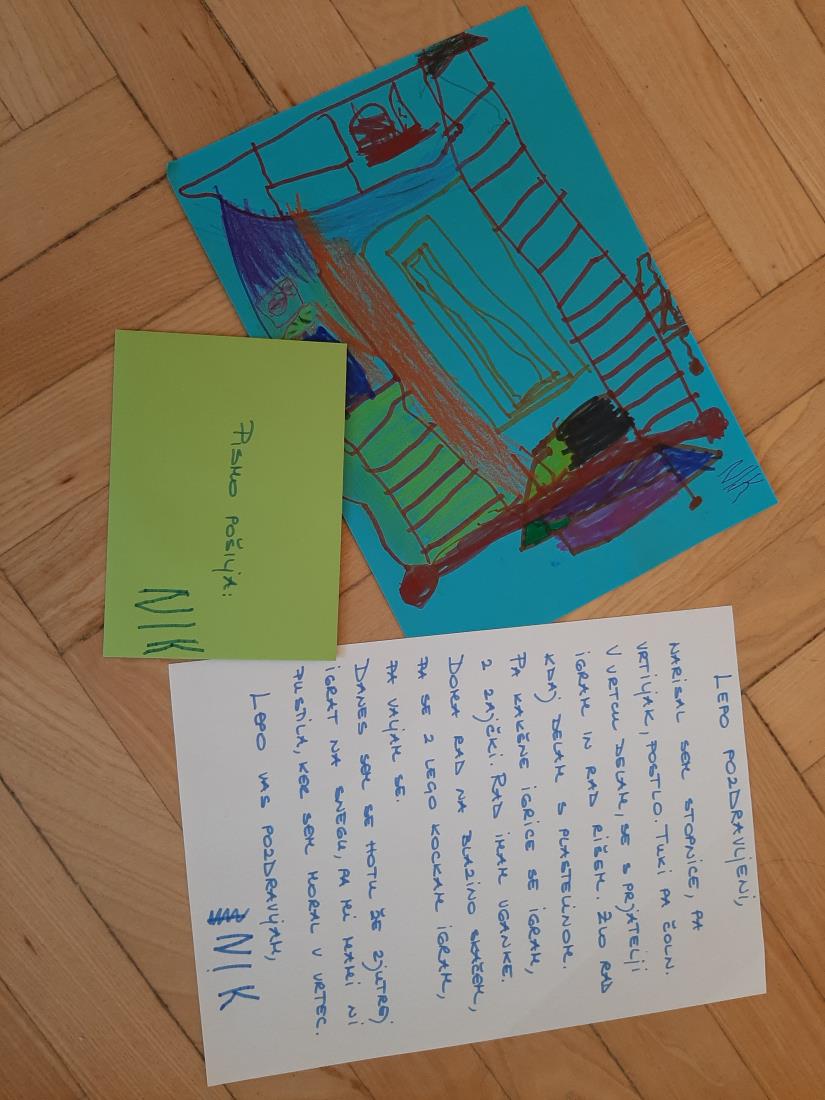 NIK
PISMO POŠILJA:
NIK
LEPO POZDRAVLJENI,
NARISAL SEM STOPNICE, PA
VRTILJAK, POSTLO. TUKI PA ČOLN.
V VRTCU DELAM, SE S PRJATELJI
IGRAM IN RAD RIŠEM. ZLO RAD
KDAJ DELAM S PLASTELINOM.
PA KAKŠNE IGRICE SE IGRAM,
Z ZAJČKI. RAD IMAM UGANKE.
DOMA RAD NA BLAZINO SKAČEM,
PA SE Z LEGO KOCKAM IGRAM,
PA VALJAM SE.
DANES SEM SE HOTU ŽE ZJUTREJ
IGRAT NA SNEGU, PA MI MAMI NI
PUSTILA, KER SEM MORAL V VRTEC.
LEPO VAS POZDRAVLJAM,
NIK